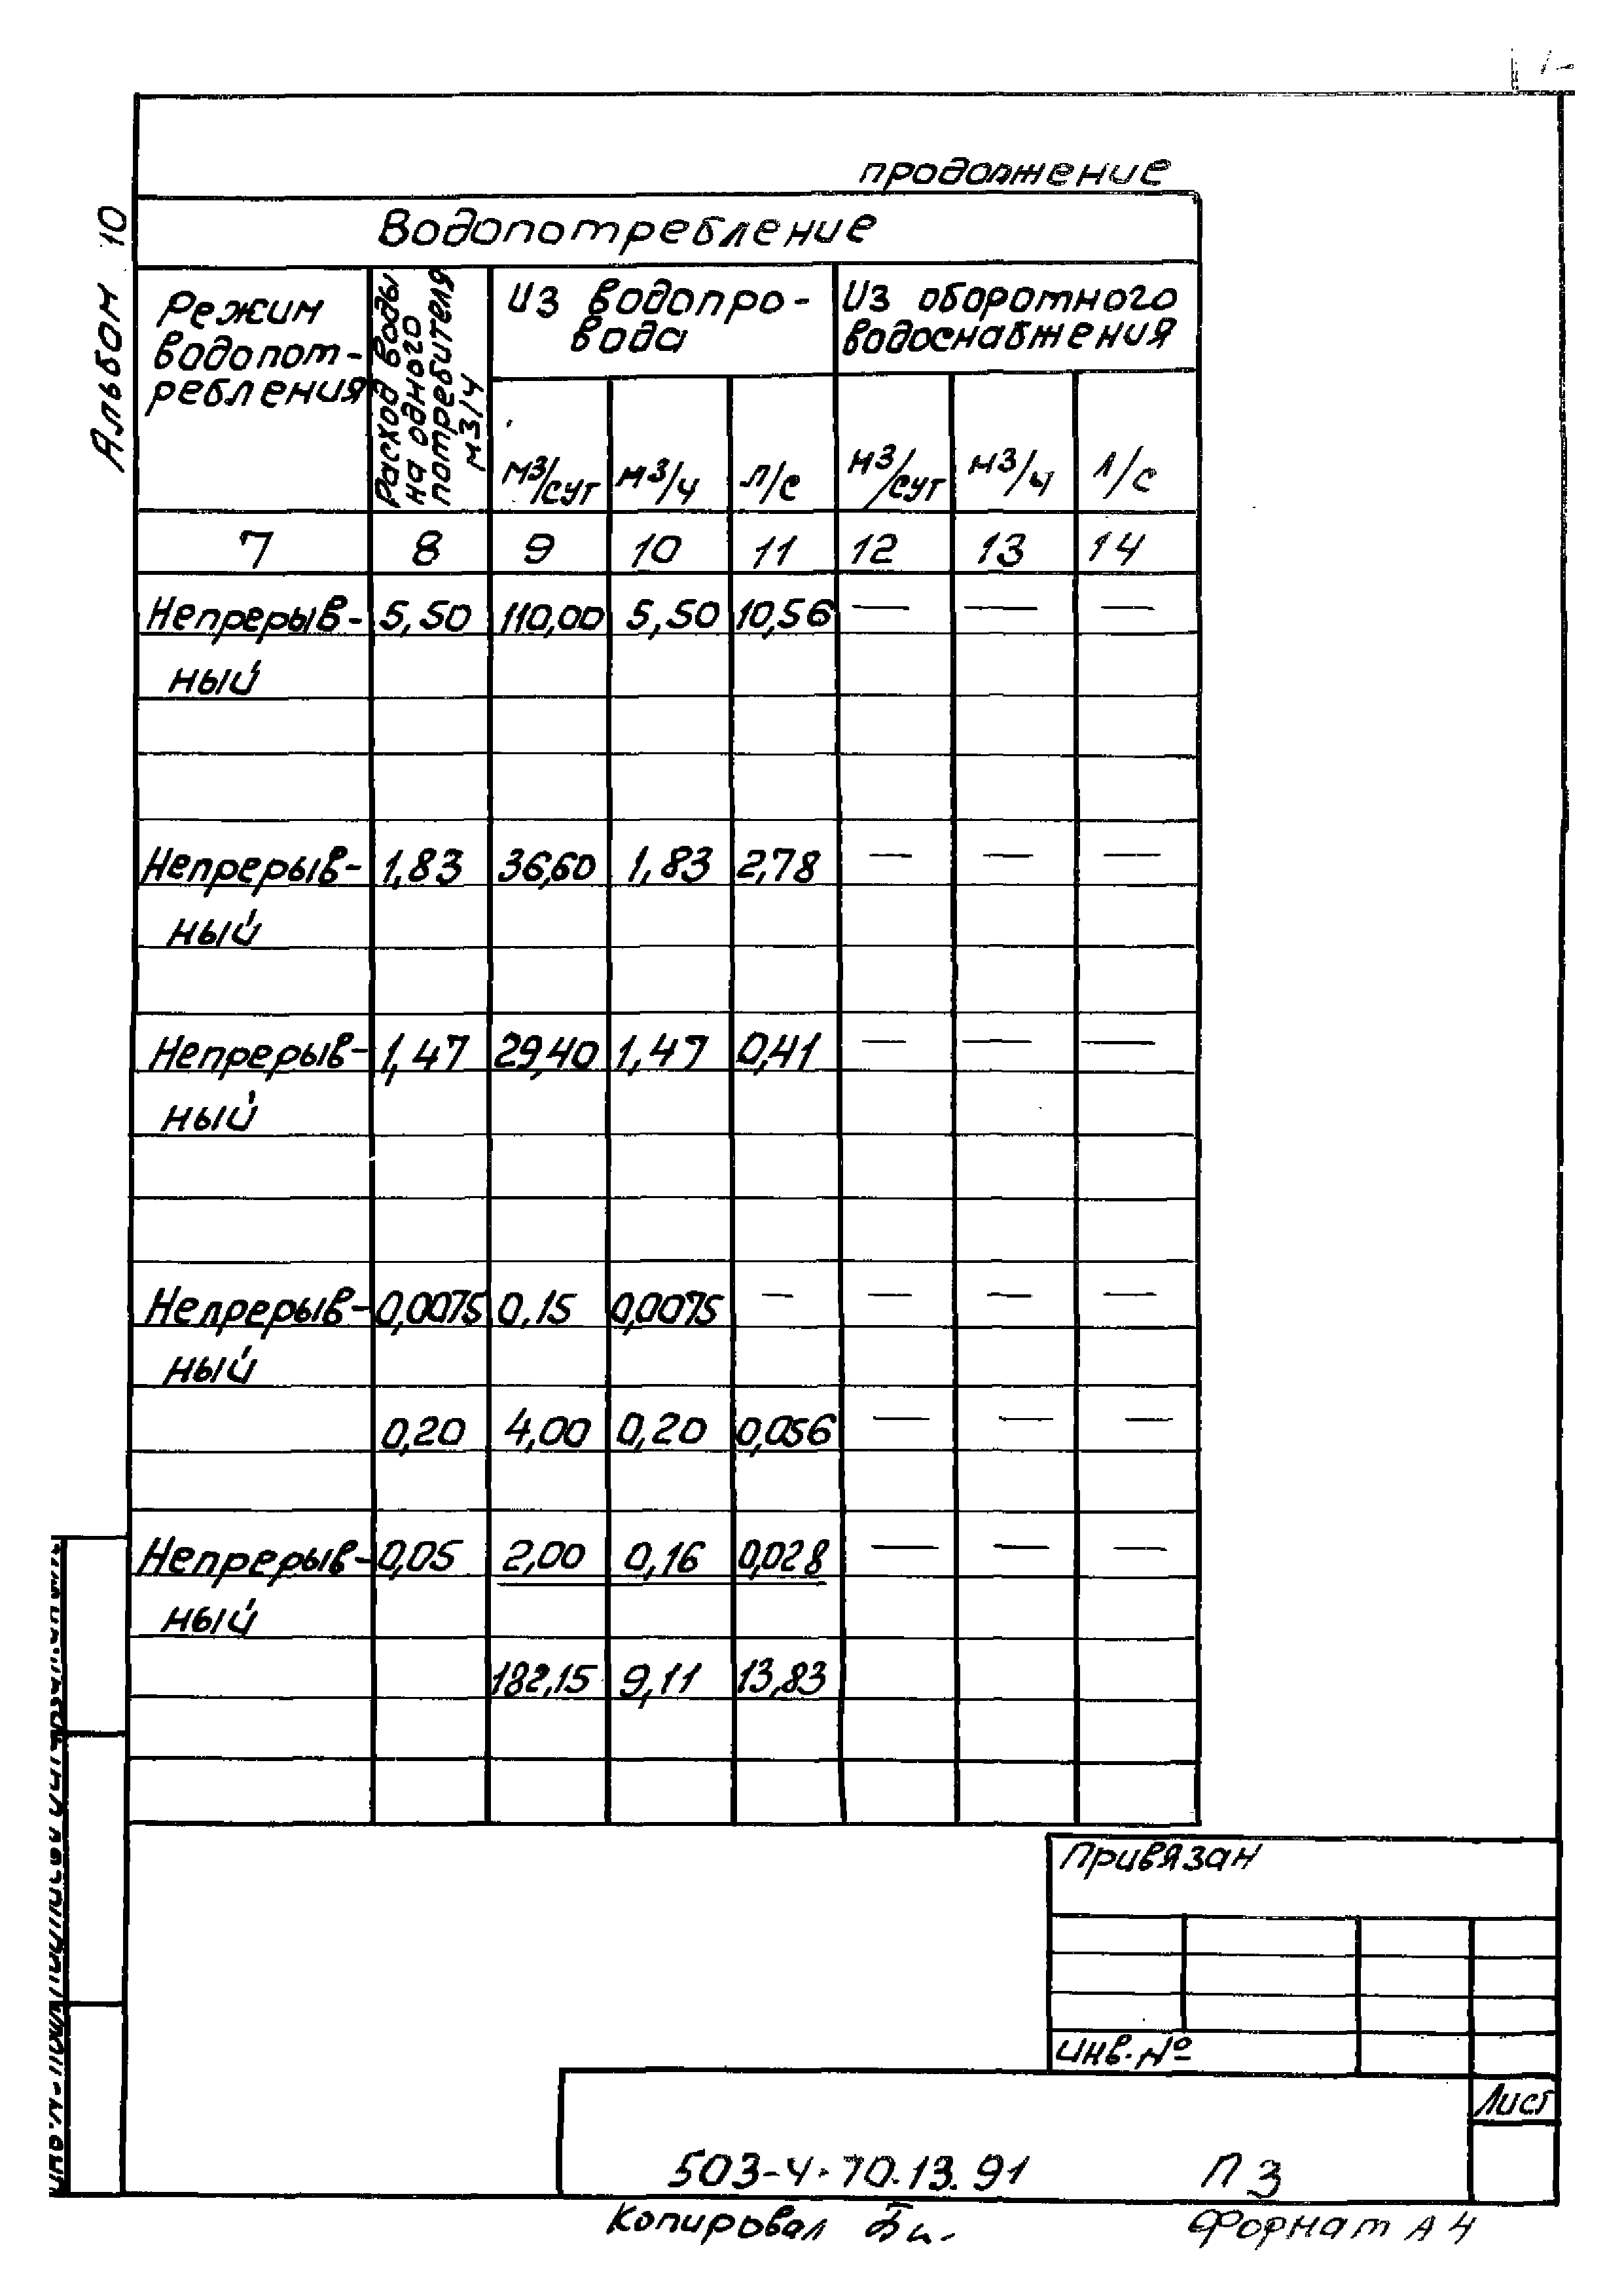 продолжение
Альбом 10
Водопотребление
Режим водопот-ребления
Расход воды на одного потребителя м3/ч
Из водопро-вода
Из оборотного водоснабжения
м3/сут м3/ч л/с м3/сут м3/ч л/с
7 8 9 10 11 12 13 14
Непрерыв- 5,50 110,00 5,50 10,56 — — —
ный
Непрерыв- 1,83 36,60 1,83 2,78 — — —
ный
Непрерыв- 1,47 29,40 1,47 0,41 — — —
ный
Непрерыв- 0,0075 0,15 0,0075 — — — —
ный
0,20 4,00 0,20 0,056 — — —
Непрерыв- 0,05 2,00 0,16 0,028 — — —
ный
182,15 9,11 13,83
Привязан
Инв. №
Лист
503-4-70.13.91 ПЗ
Копировал
Формат А4